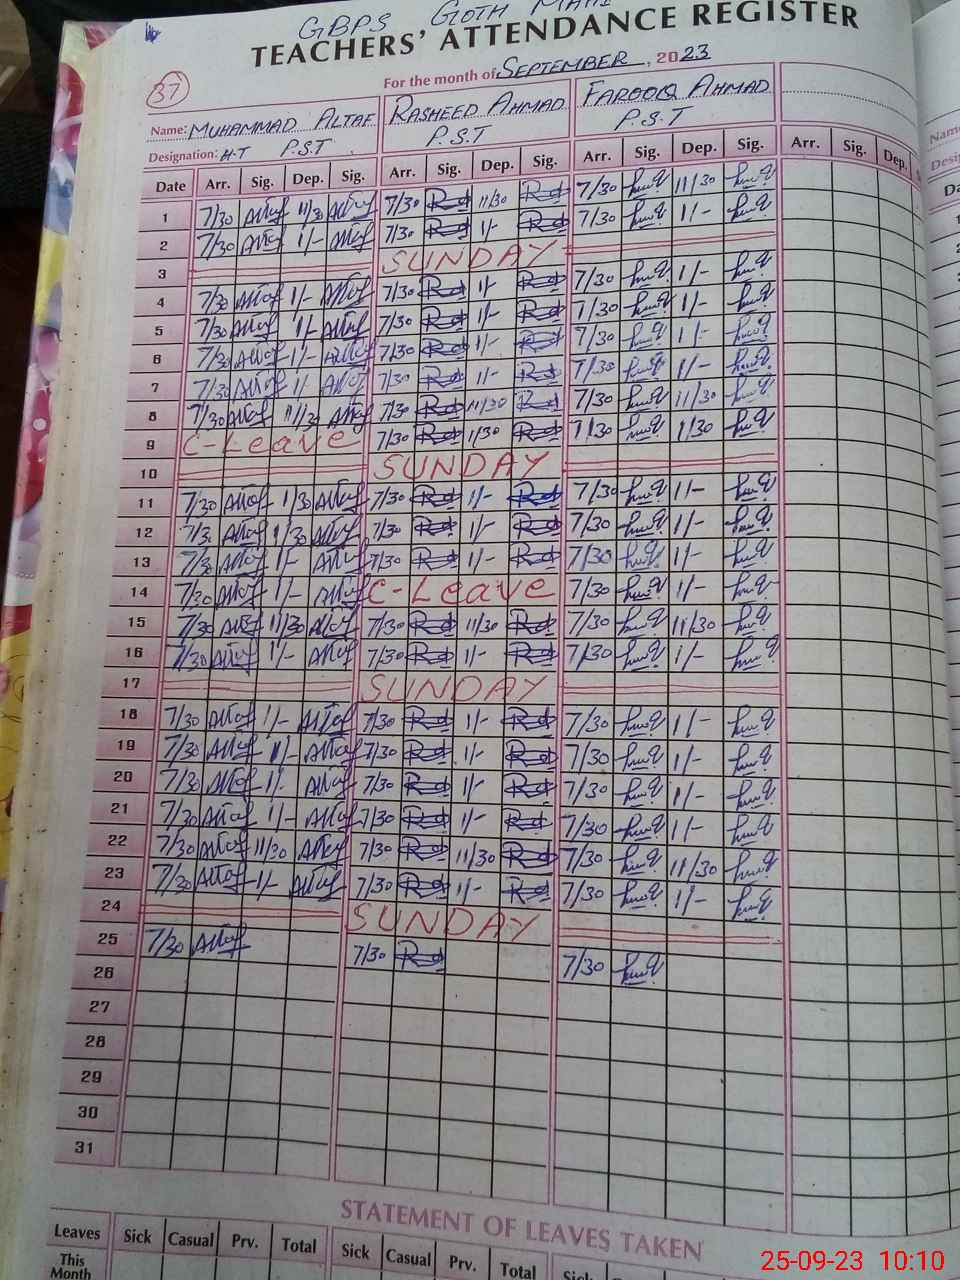 GBPS GOTH
TEACHERS' ATTENDANCE REGISTER
37
For the month of SEPTEMBER, 2023
Name: MUHAMMAD ALTAF RASHEED AHMAD FAROOQ AHMAD
Designation: H.T P.S.T P.S.T P.S.T
Date Arr. Sig. Dep. Sig. Arr. Sig. Dep. Sig. Arr. Sig. Dep. Sig. Arr. Sig. Dep.
1 7/30 Altaf 11/30 Altaf 7/30 Rd 11/30 Rd 7/30 11/30
2 7/30 Altaf 1/- Altaf 7/30 Rd 1/- Rd 7/30 1/-
3 SUNDAY
4 7/30 Altaf 1/- Altaf 7/30 Rd 1/- Rd 7/30 1/-
5 7/30 Altaf 1/- Altaf 7/30 Rd 1/- Rd 7/30 1/-
6 7/30 Altaf 1/- Altaf 7/30 Rd 1/- Rd 7/30 1/-
7 7/30 Altaf 1/- Altaf 7/30 Rd 1/- Rd 7/30 1/-
8 7/30 Altaf 11/30 Altaf 7/30 Rd 11/30 Rd 7/30 11/30
9 C-Leave 7/30 Rd 1/30 Rd 7/30 1/30
10 SUNDAY
11 7/30 Altaf 1/30 Altaf 7/30 Rd 1/- Rd 7/30 1/-
12 7/30 Altaf 1/30 Altaf 7/30 Rd 1/- Rd 7/30 1/-
13 7/30 Altaf 1/- Altaf 7/30 Rd 1/- Rd 7/30 1/-
14 7/30 Altaf 1/- Altaf C-Leave 7/30 1/-
15 7/30 Altaf 11/30 Altaf 7/30 Rd 11/30 Rd 7/30 11/30
16 7/30 Altaf 1/- Altaf 7/30 Rd 1/- Rd 7/30 1/-
17 SUNDAY
18 7/30 Altaf 1/- Altaf 7/30 Rd 1/- Rd 7/30 1/-
19 7/30 Altaf 1/- Altaf 7/30 Rd 1/- Rd 7/30 1/-
20 7/30 Altaf 1/- Altaf 7/30 Rd 1/- Rd 7/30 1/-
21 7/30 Altaf 1/- Altaf 7/30 Rd 1/- Rd 7/30 1/-
22 7/30 Altaf 11/30 Altaf 7/30 Rd 11/30 Rd 7/30 11/30
23 7/30 Altaf 1/- Altaf 7/30 Rd 1/- Rd 7/30 1/-
24 SUNDAY
25 7/30 Altaf 7/30 Rd 7/30
26
27
28
29
30
31
STATEMENT OF LEAVES TAKEN
Leaves Sick Casual Prv. Total Sick Casual Prv. Total Sick
This Month
25-09-23 10:10